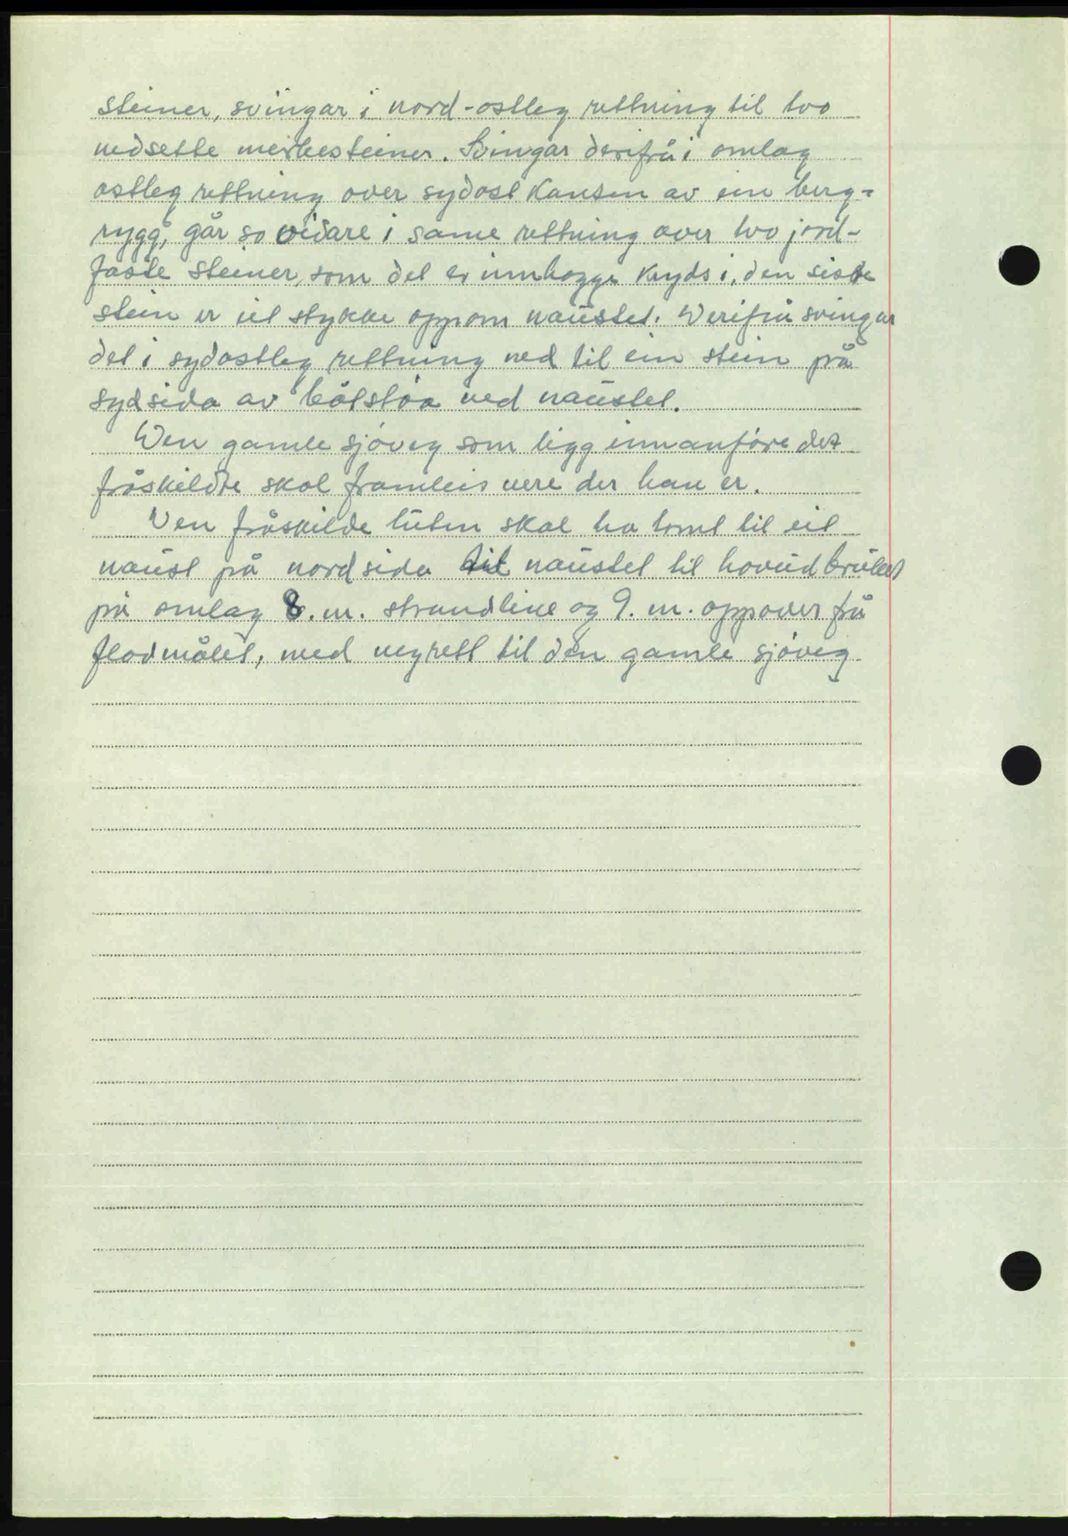 steiner, svingar i nord-ostleg rettning til two
nedsette merkesteiner. Svingar derifrå i omlag
ostleg rettning over sydost kansen av ein berg=
rygg, går so vidare i same rettning over two jord-
faste steiner, som det er innhogge kryds i, den siste
stein er eit stykke oppom naustet. Derifrå svingar
det i sydostleg rettning ned til ein stein på
sydsida av båtstøa ved naustet.
Den gamle sjøveg som ligg innanføre det
fråskildte skal framleis vere der han er.
Den fråskilde luten skal ha tomt til eit
naust på nordsida til naustet til hovudbruket
på omlag 8. m. strandline og 9. m. oppover frå
flodmålet, med vegrett til den gamle sjøveg